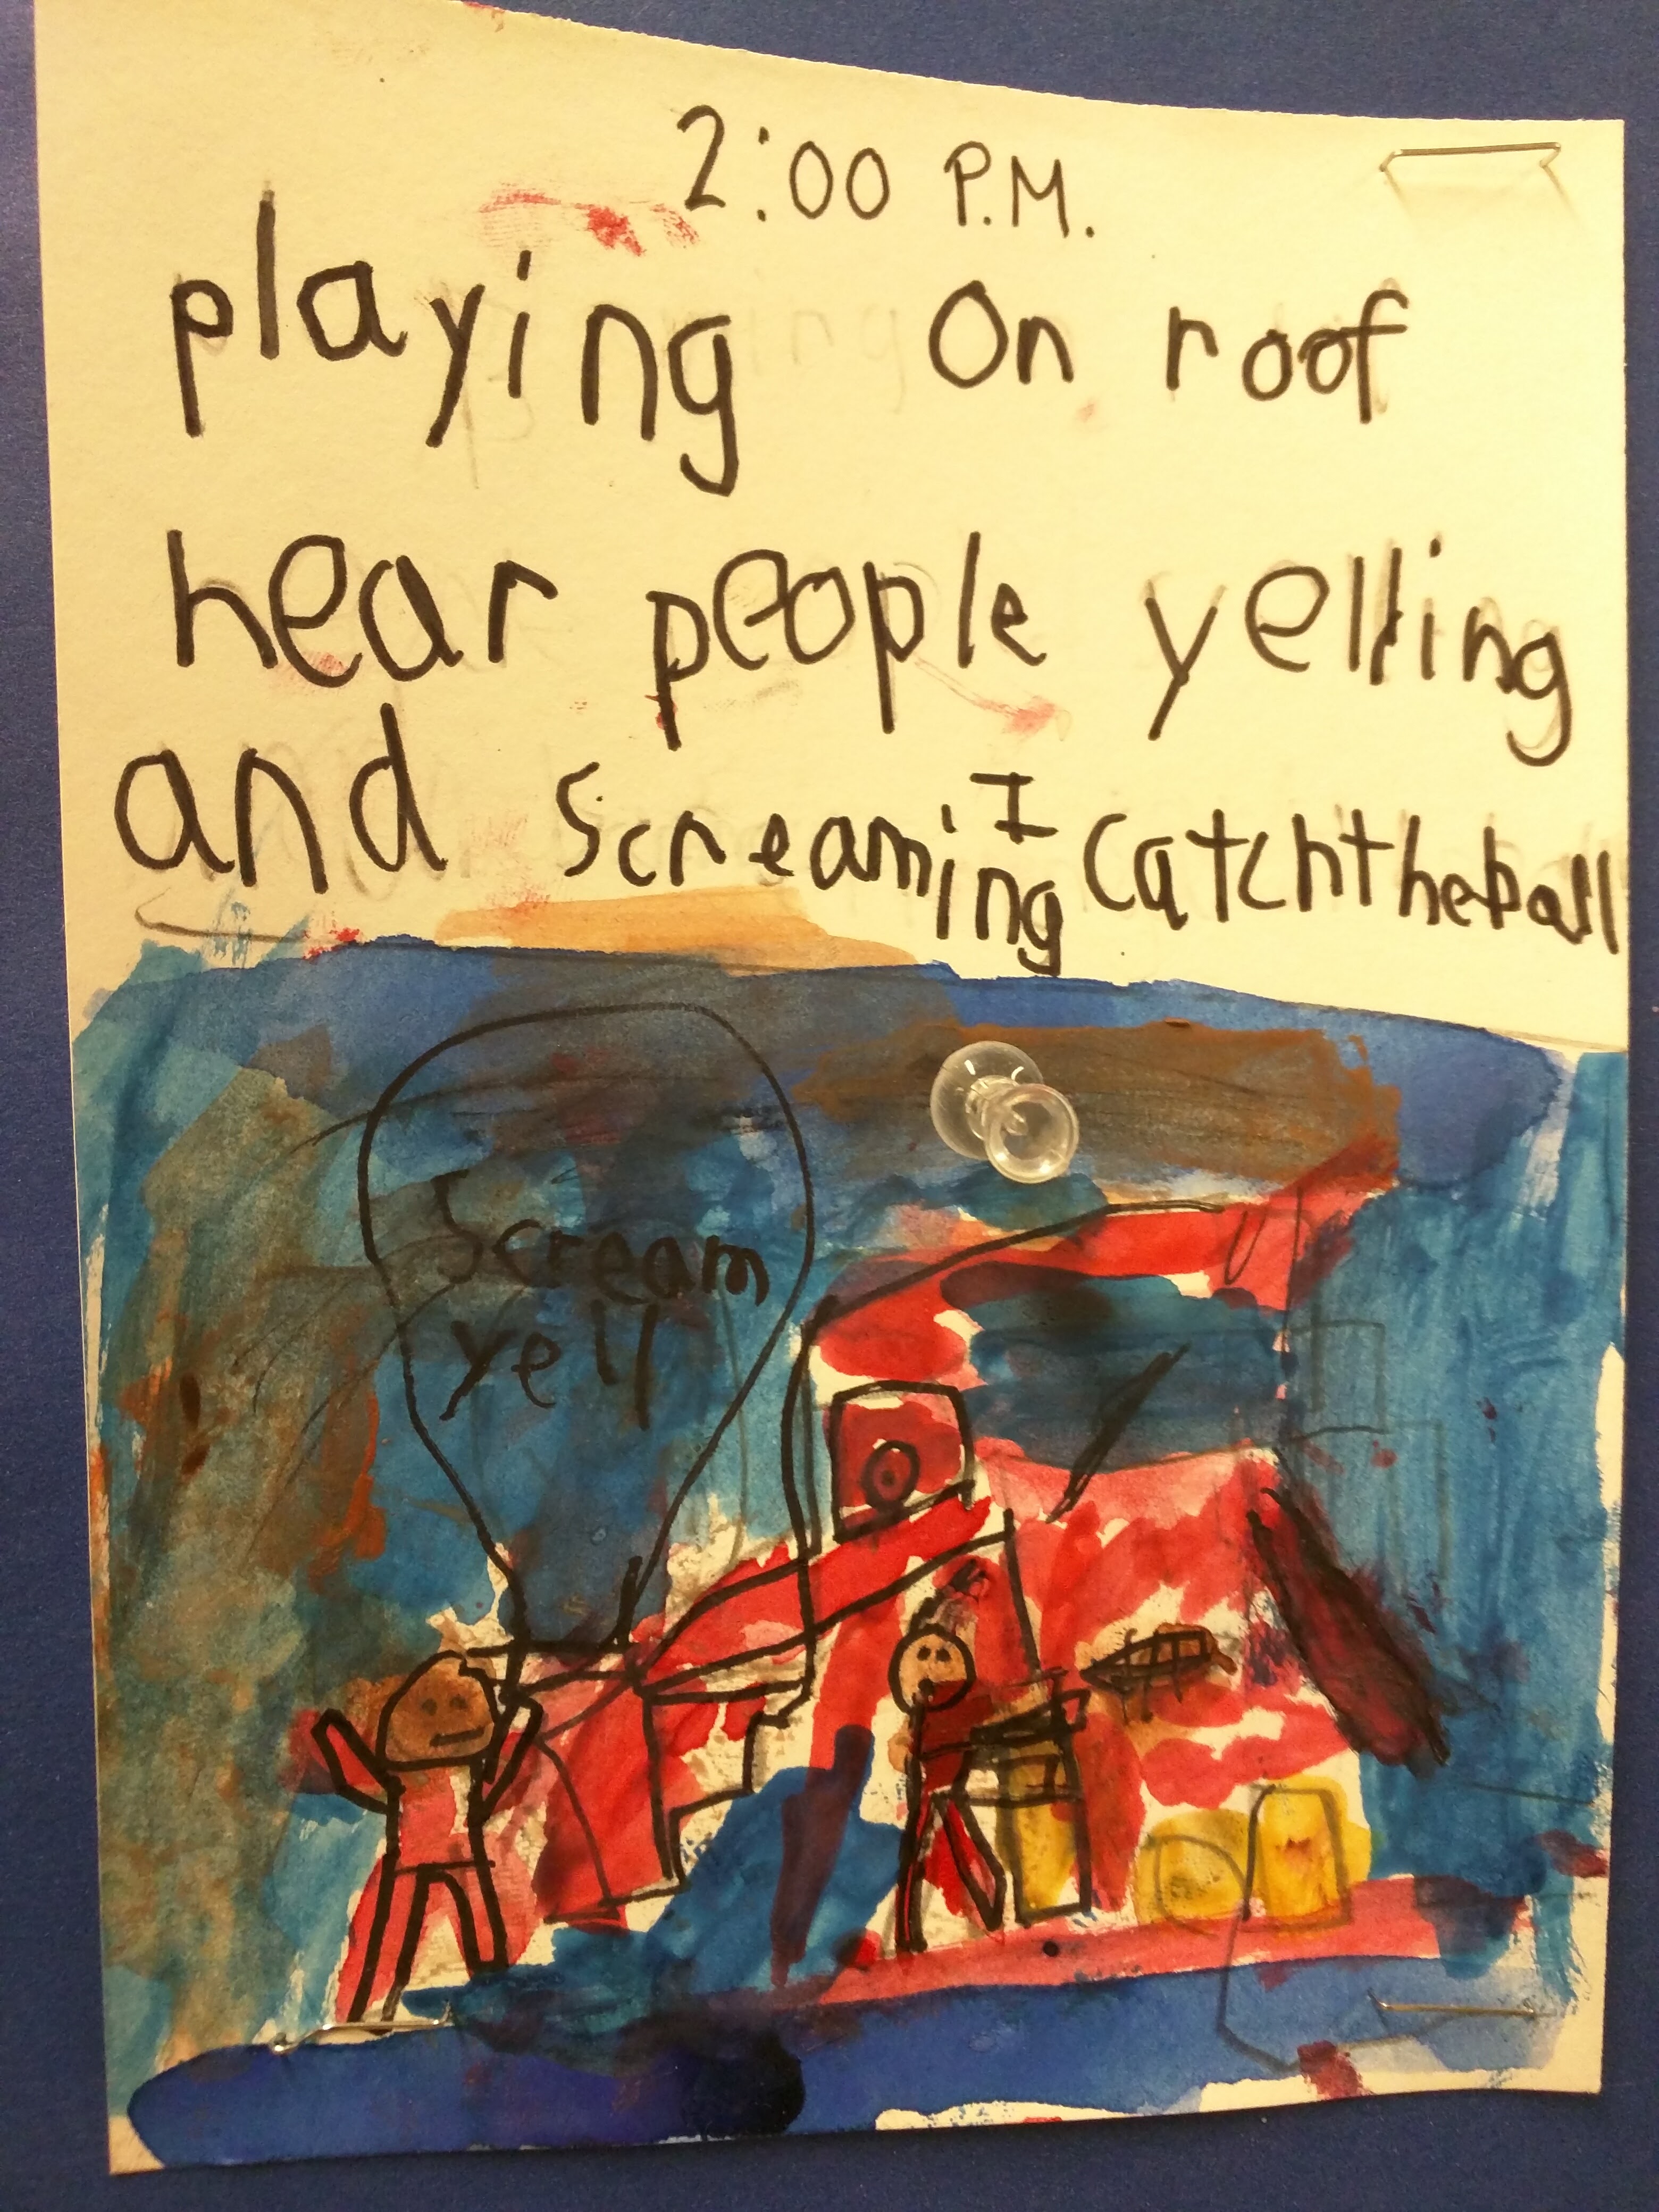 2:00 P.M.
playing On roof
hear people yelling
and screaming I catchtheball
Scream
yell